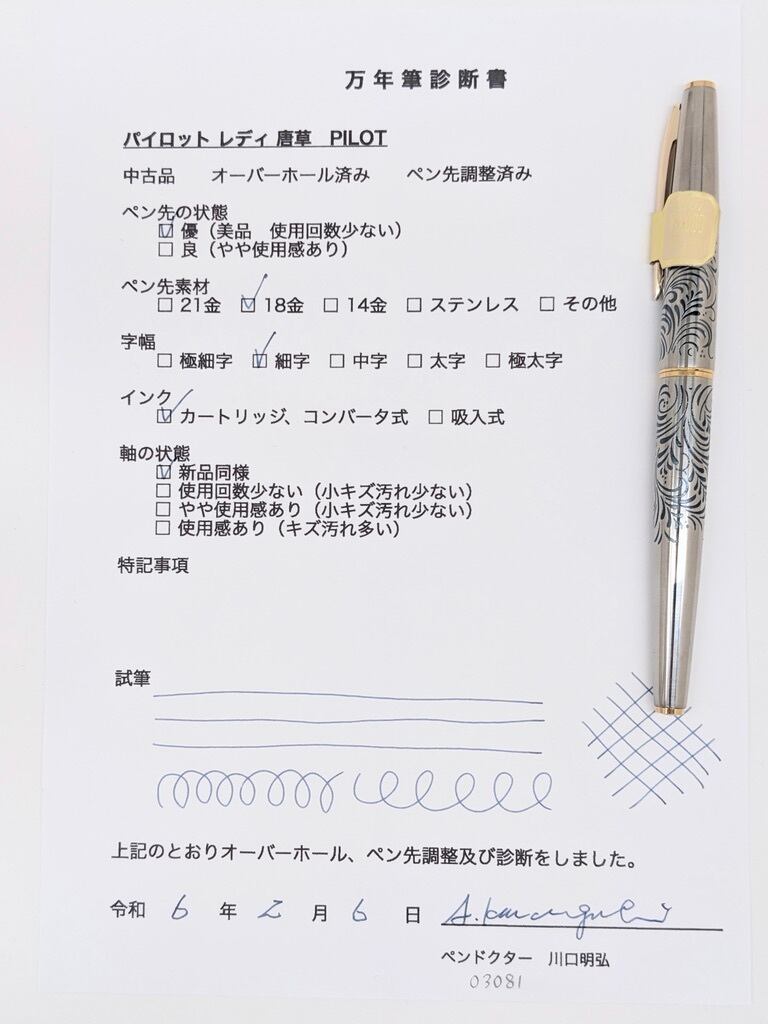 万年筆診断書
パイロット レディ 唐草　PILOT
中古品　　オーバーホール済み　　ペン先調整済み
ペン先の状態
☑ 優（美品　使用回数少ない）
☐ 良（やや使用感あり）
ペン先素材
☐ 21金　☑ 18金　☐ 14金　☐ ステンレス　☐ その他
字幅
☐ 極細字　☑ 細字　☐ 中字　☐ 太字　☐ 極太字
インク
☑ カートリッジ、コンバータ式　☐ 吸入式
軸の状態
☑ 新品同様
☐ 使用回数少ない（小キズ汚れ少ない）
☐ やや使用感あり（小キズ汚れ少ない）
☐ 使用感あり（キズ汚れ多い）
特記事項
試筆
上記のとおりオーバーホール、ペン先調整及び診断をしました。
令和 6 年 2 月 6 日 A. Kawaguchi
ペンドクター　川口明弘
03081